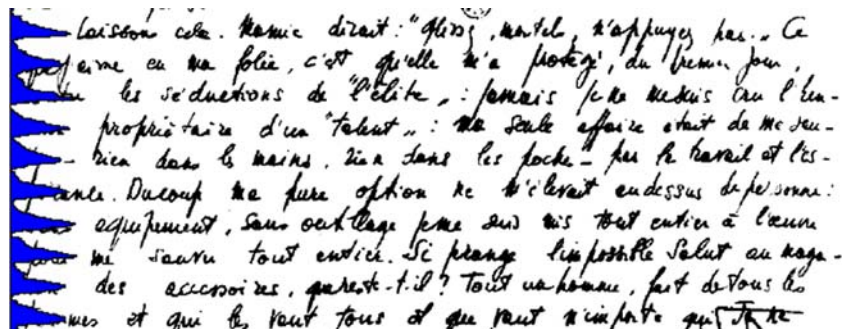 Laissons cela. Mamie dirait : "Glissez, mortels, n'appuyez pas." Ce
j'aime en ma folie, c'est qu'elle m'a protégé, du premier jour,
les séductions de "l'élite" : jamais je ne me suis cru l'heu-
propriétaire d'un "talent" : ma seule affaire était de me sau-
- rien dans les mains, rien dans les poches - par le travail et l'es-
Du coup ma pure option ne m'élevait au dessus de personne :
équipement, sans outillage je me suis mis tout entier à l'œuvre
me sauver tout entier. Si je range l'impossible Salut au maga-
des accessoires, que reste-t-il ? Tout un homme, fait de tous les
et qui les vaut tous et que vaut n'importe qui